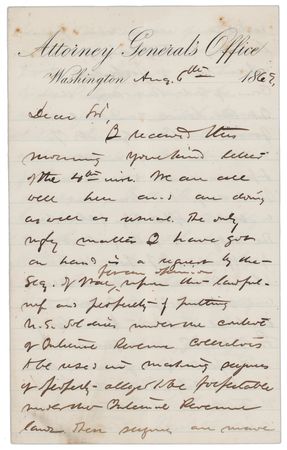 Attorney General's Office
Washington Aug. 6th 1869,
Dear Sir,
I received this
morning your kind letter
of the 4th inst. We are all
well here and are doing
as well as usual. The only
ugly matter I have got
on hand is a request by the
for an opinion
Sec. of War, upon the lawful-
ness and propriety of putting
U.S. Soldiers under the control
of Internal Revenue Collectors
to be used in making seizures
of property alleged to be forfeitable
under the Internal Revenue
laws. These seizures are made